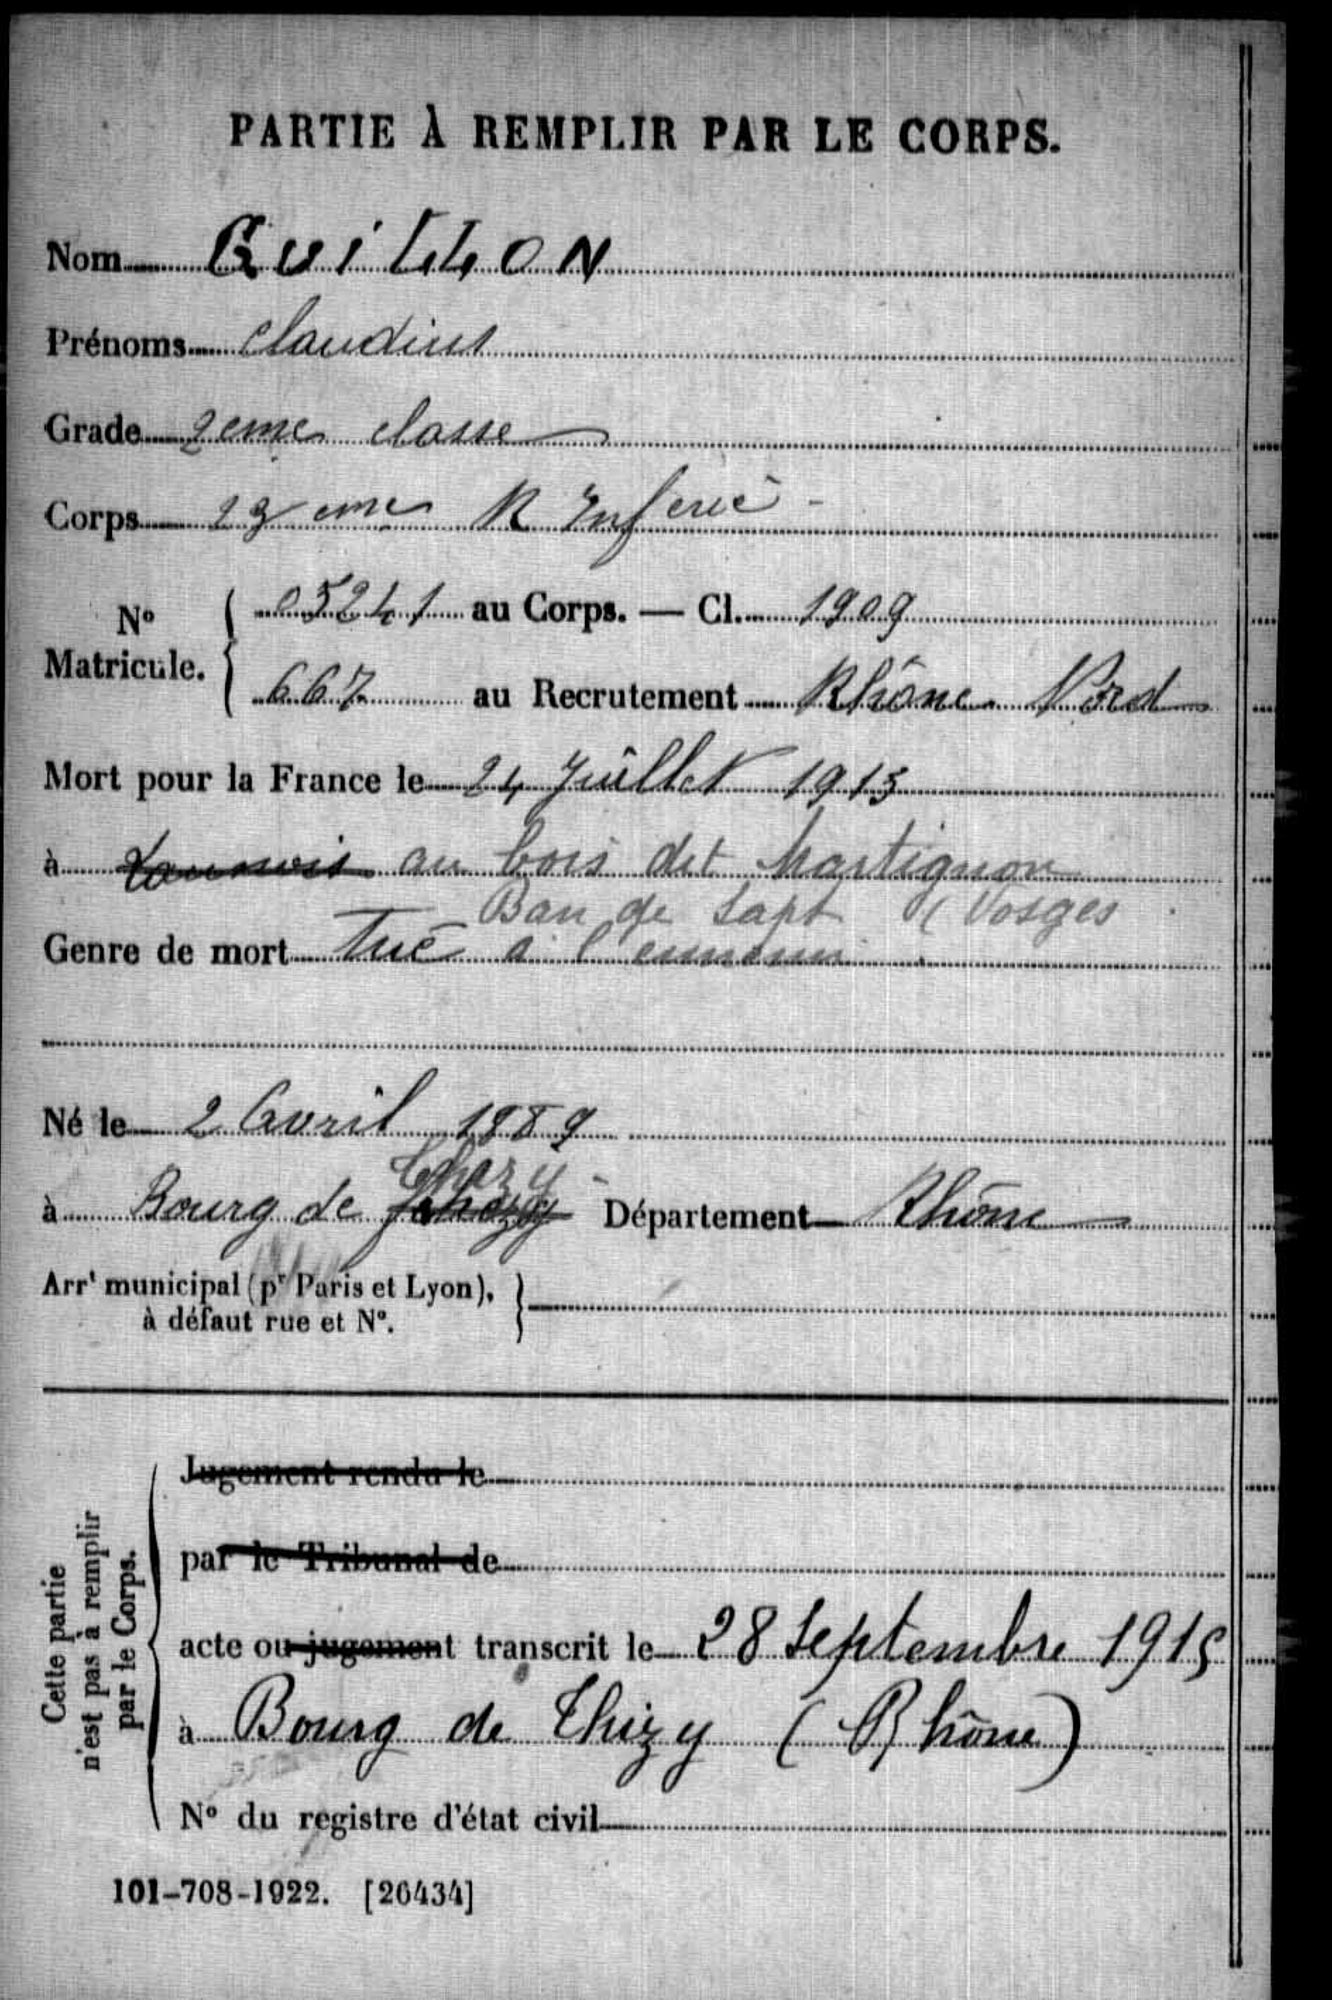 PARTIE À REMPLIR PAR LE CORPS.
Nom GUILLON
Prénoms Claudius
Grade 2eme classe
Corps 23eme R Inferie -
No 05241 au Corps. — Cl. 1909
Matricule. 667 au Recrutement Rhône Nord
Mort pour la France le 24 Juillet 1915
à au bois dit Martignon
Ban de Sapt (Vosges
Genre de mort Tué à l'ennemi
Né le 2 Avril 1889
Thizy
à Bourg de Département Rhône
Arrt municipal (pr Paris et Lyon),
à défaut rue et No.
Cette partie
n'est pas à remplir
par le Corps.
Jugement rendu le
par le Tribunal de
acte ou jugement transcrit le 28 Septembre 1915
à Bourg de Thizy (Rhône)
No du registre d'état civil
101-708-1922. [26434]